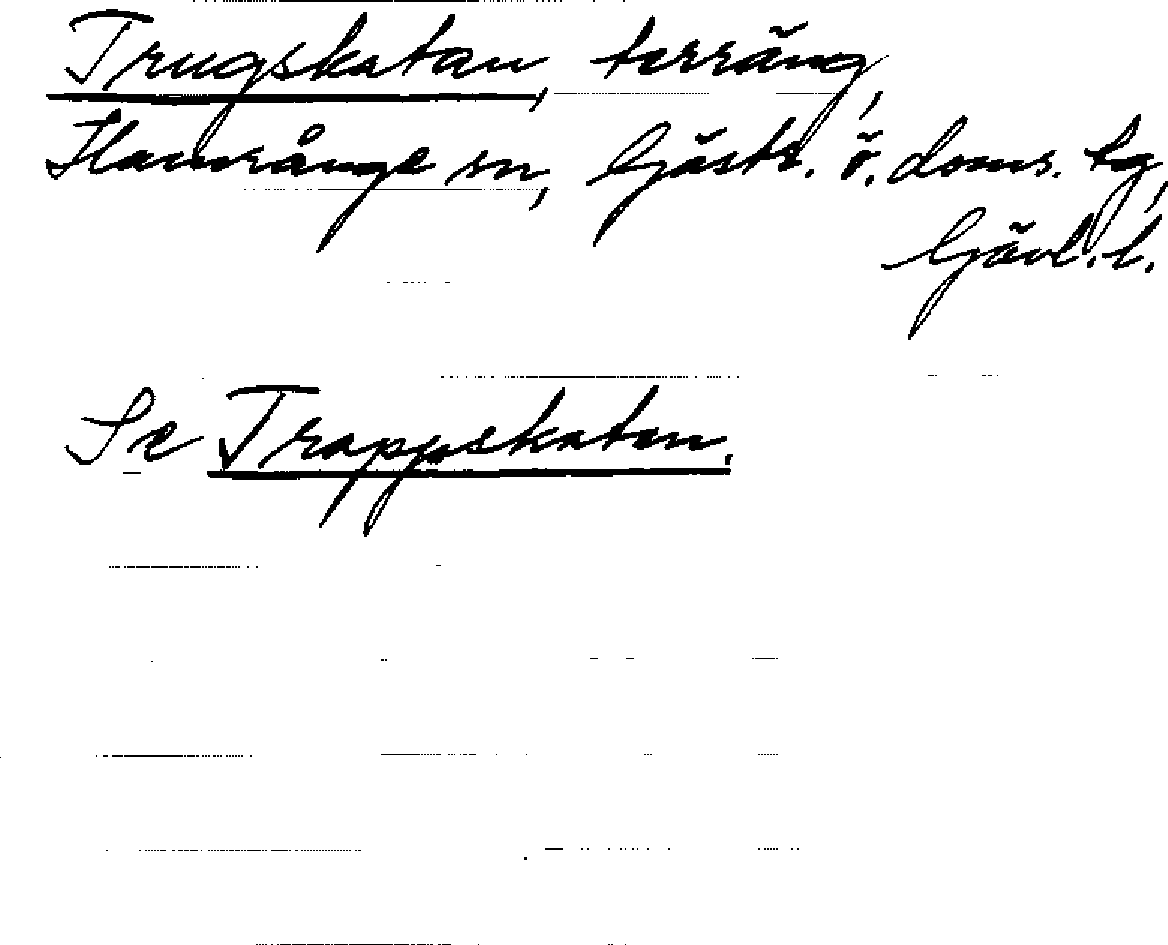 Trugskatan, terräng,
Hamrånge sn, Gästr. ö. doms. tg,
Gävl. l.
Se Trappskatan.